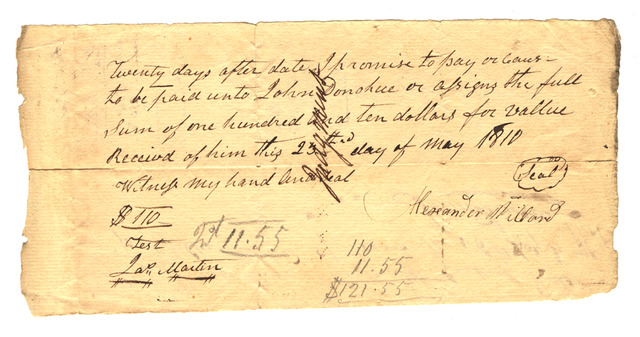 Twenty days after date I promise to pay or Caus-
to be paid unto John Donohue or assigns the full
Sum of one hundred and ten dollars for vallue
Receivd of him this 23rd day of may 1810
Witness my hand and Seal
Seal
Alexander Willard
$110
Test
Jas Martin
11.55
110
11.55
$121.55